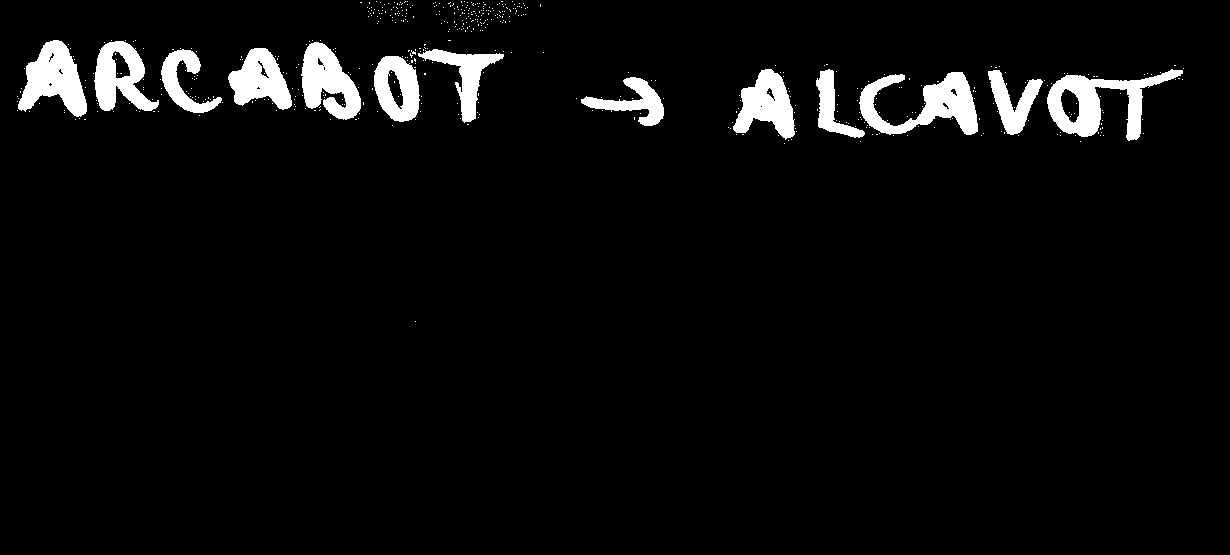 ARCABOT → ALCAVOT